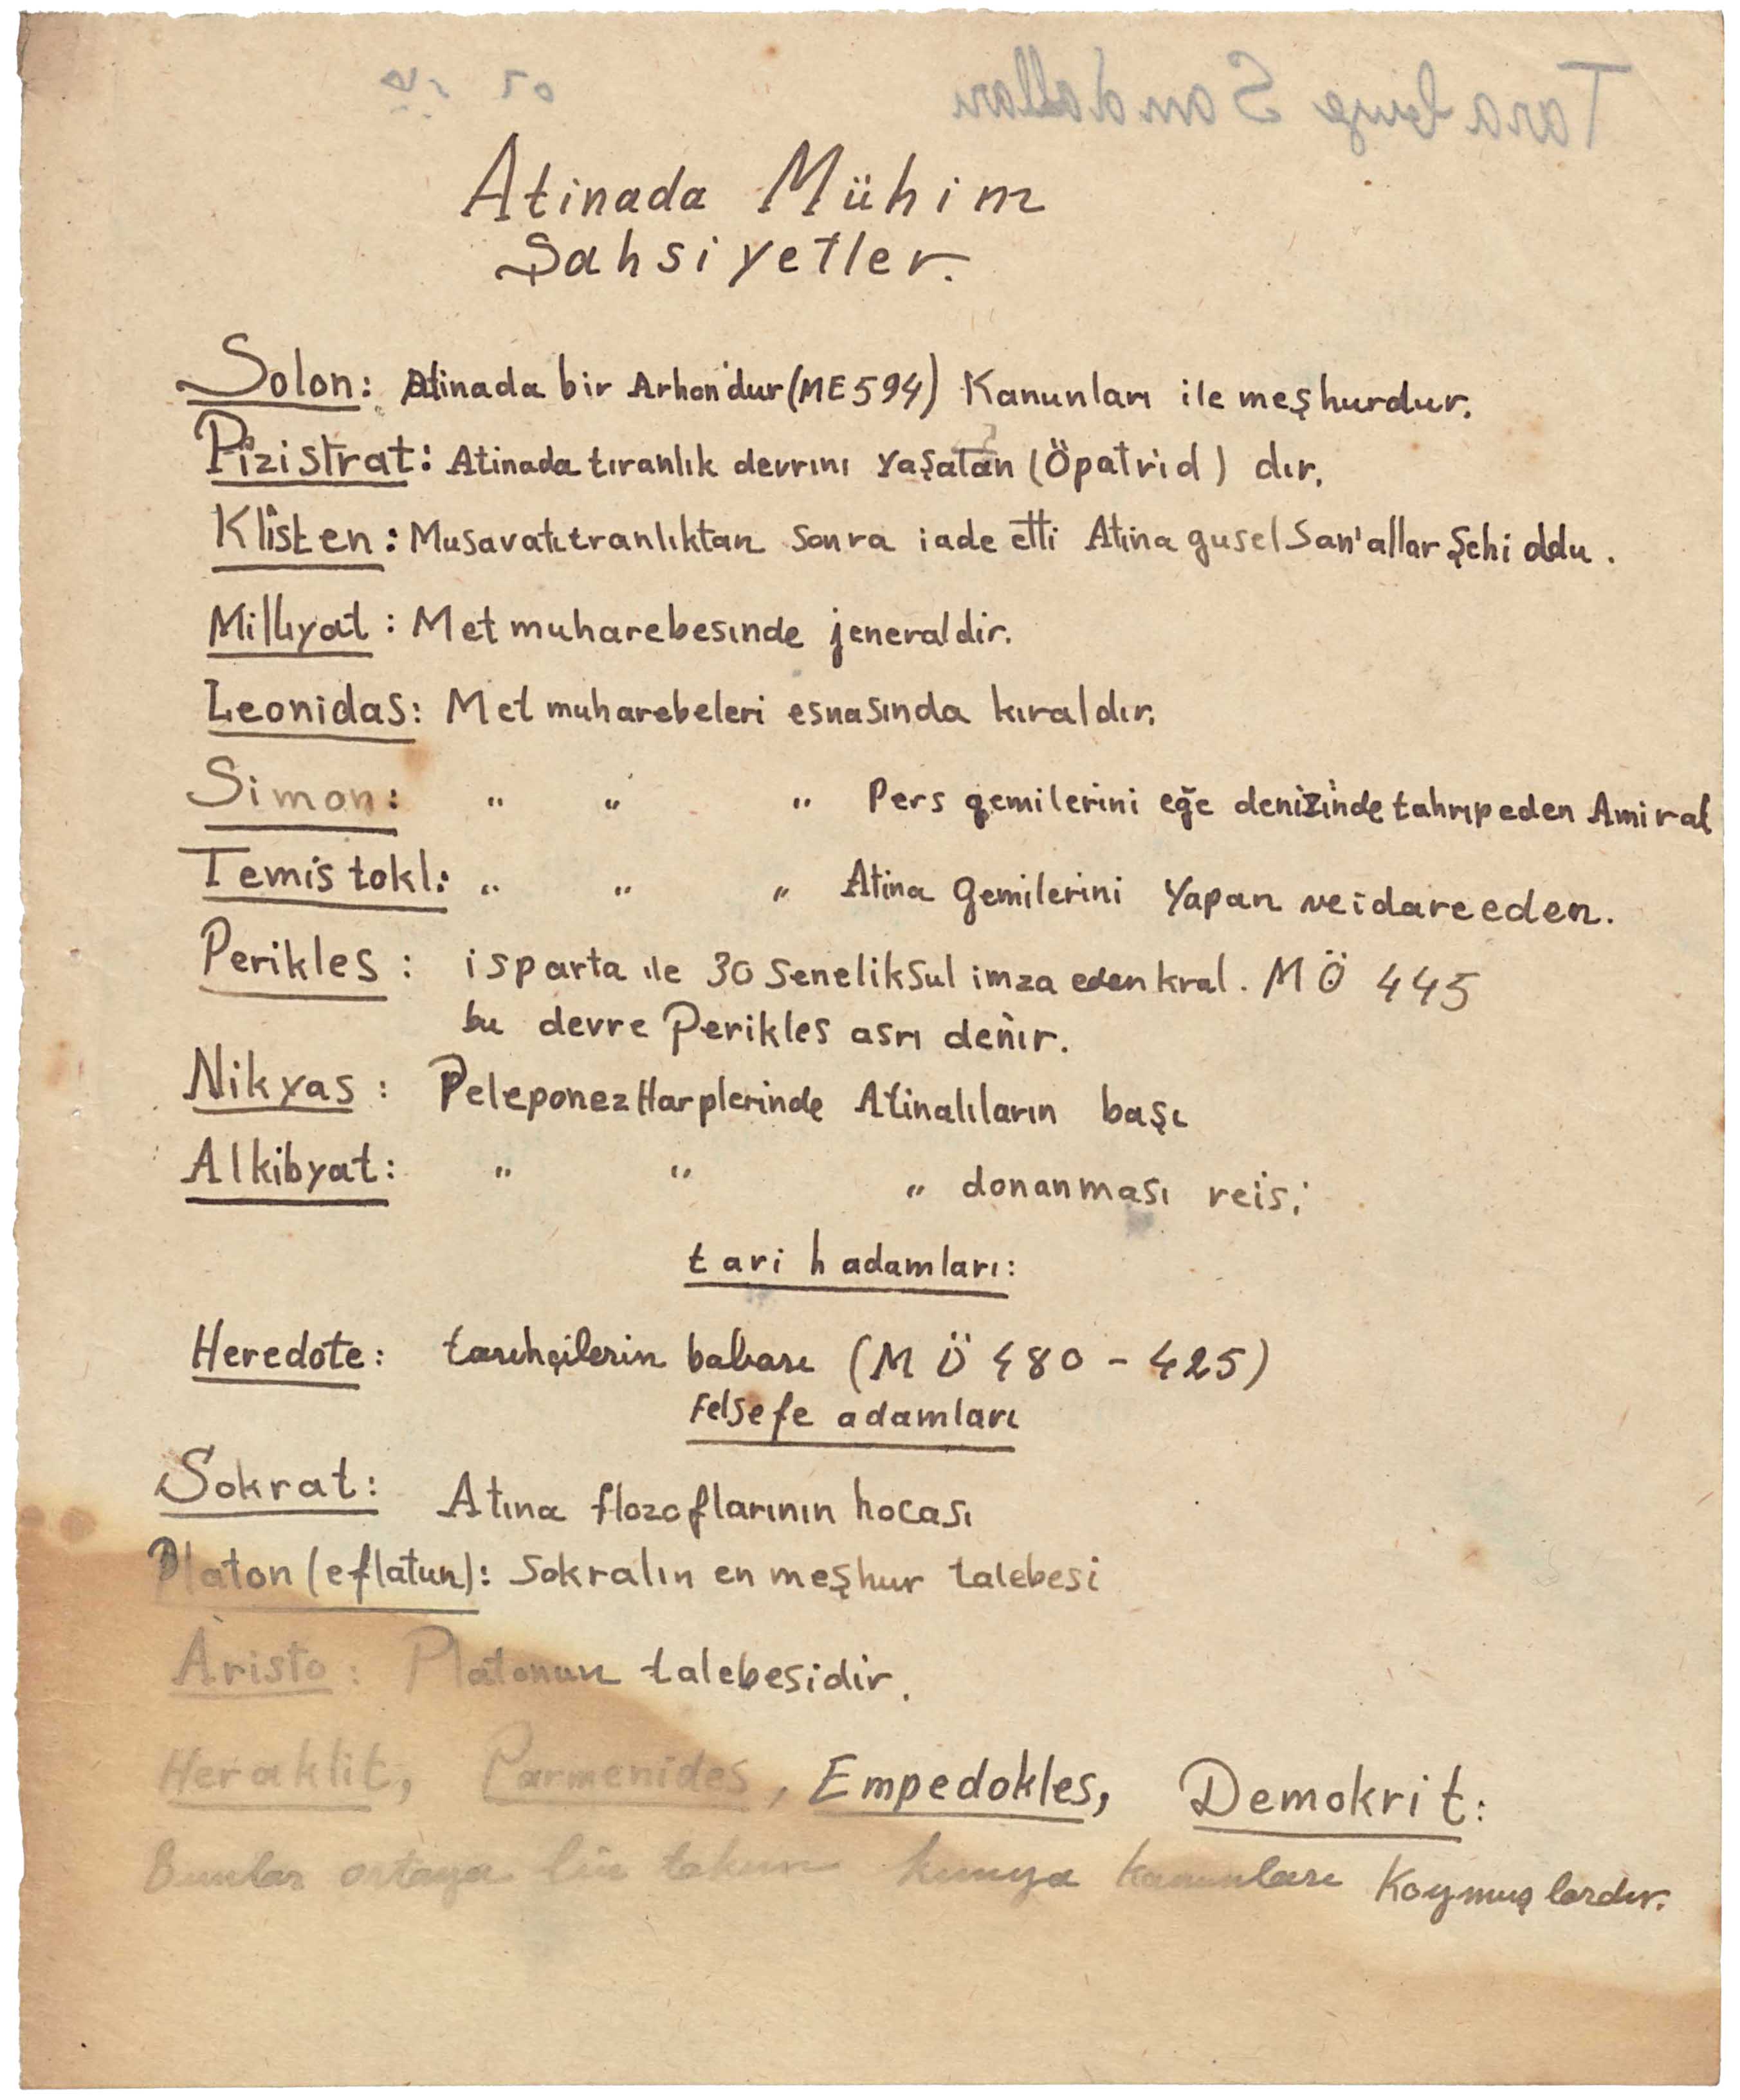 Tarabuya Sandalları
Atinada Mühim
Şahsiyetler.
Solon: Atinada bir Arhon'dur (ME 594) Kanunları ile meşhurdur.
Pizistrat: Atinada tıranlık devrını yaşatan (Öpatrid) dır.
Klisten: Musavatı tranlıktan sonra iade etti Atina gusel San'atlar Şehi oldu.
Miltıyat: Met muharebesınde jeneraldir.
Leonidas: Met muharebeleri esnasında kıraldır.
Simon: " " " Pers gemilerini eğe denizinde tahrıp eden Amiral
Temistokl: " " " Atina gemilerini Yapan ve idare eden.
Perikles: isparta ıle 30 Senelik Sul imza eden kral. MÖ 445
bu devre Perikles asrı denir.
Nikyas: Peleponez Harplerinde Atinalıların başı
Alkibyat: " " " donanması reisi
tarih adamları:
Heredote: tarıhçilerin babası (MÖ 480 - 425)
Felsefe adamları
Sokrat: Atına flozoflarının hocası
Platon (eflatun): Sokratın en meşhur talebesi
Aristo: Platonun talebesidir.
Heraklit, Parmenides, Empedokles, Demokrit:
Bunlar ortaya bir takım kimya kanunları Koymuşlardır.